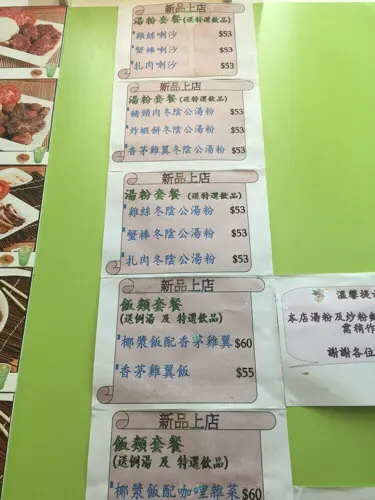 新品上店
湯粉套餐(送特選飲品)
雞絲喇沙 $53
蟹棒喇沙 $53
扎肉喇沙 $53
新品上店
湯粉套餐(送特選飲品)
豬頸肉冬陰公湯粉 $53
炸蝦餅冬陰公湯粉 $53
香茅雞翼冬陰公湯粉 $53
新品上店
湯粉套餐 (送特選飲品)
雞絲冬陰公湯粉 $53
蟹棒冬陰公湯粉 $53
扎肉冬陰公湯粉 $53
新品上店
飯類套餐
(送例湯 及 特選飲品)
椰漿飯配香茅雞翼 $60
香茅雞翼飯 $55
溫馨提
本店湯粉及炒粉
需稍作
謝謝各位
新品上店
飯類套餐
(送例湯 及 特選飲品)
椰漿飯配咖哩雜菜 $60